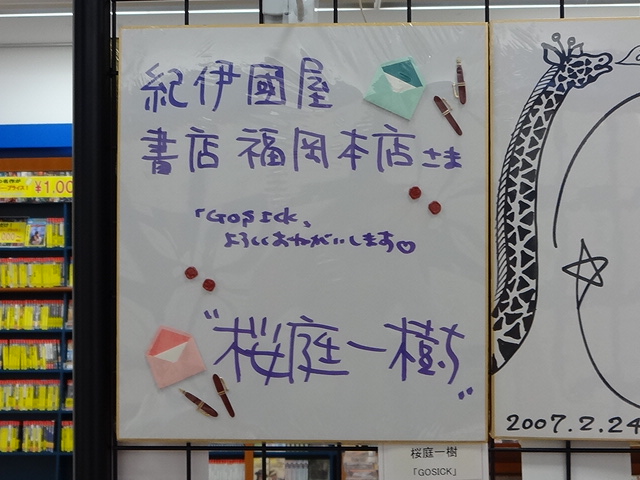 紀伊國屋
書店 福岡本店さま
「GOSICK」
よろしくおねがいします♡
"桜庭一樹"
2007.2.24
桜庭一樹
「GOSICK」
¥1.00